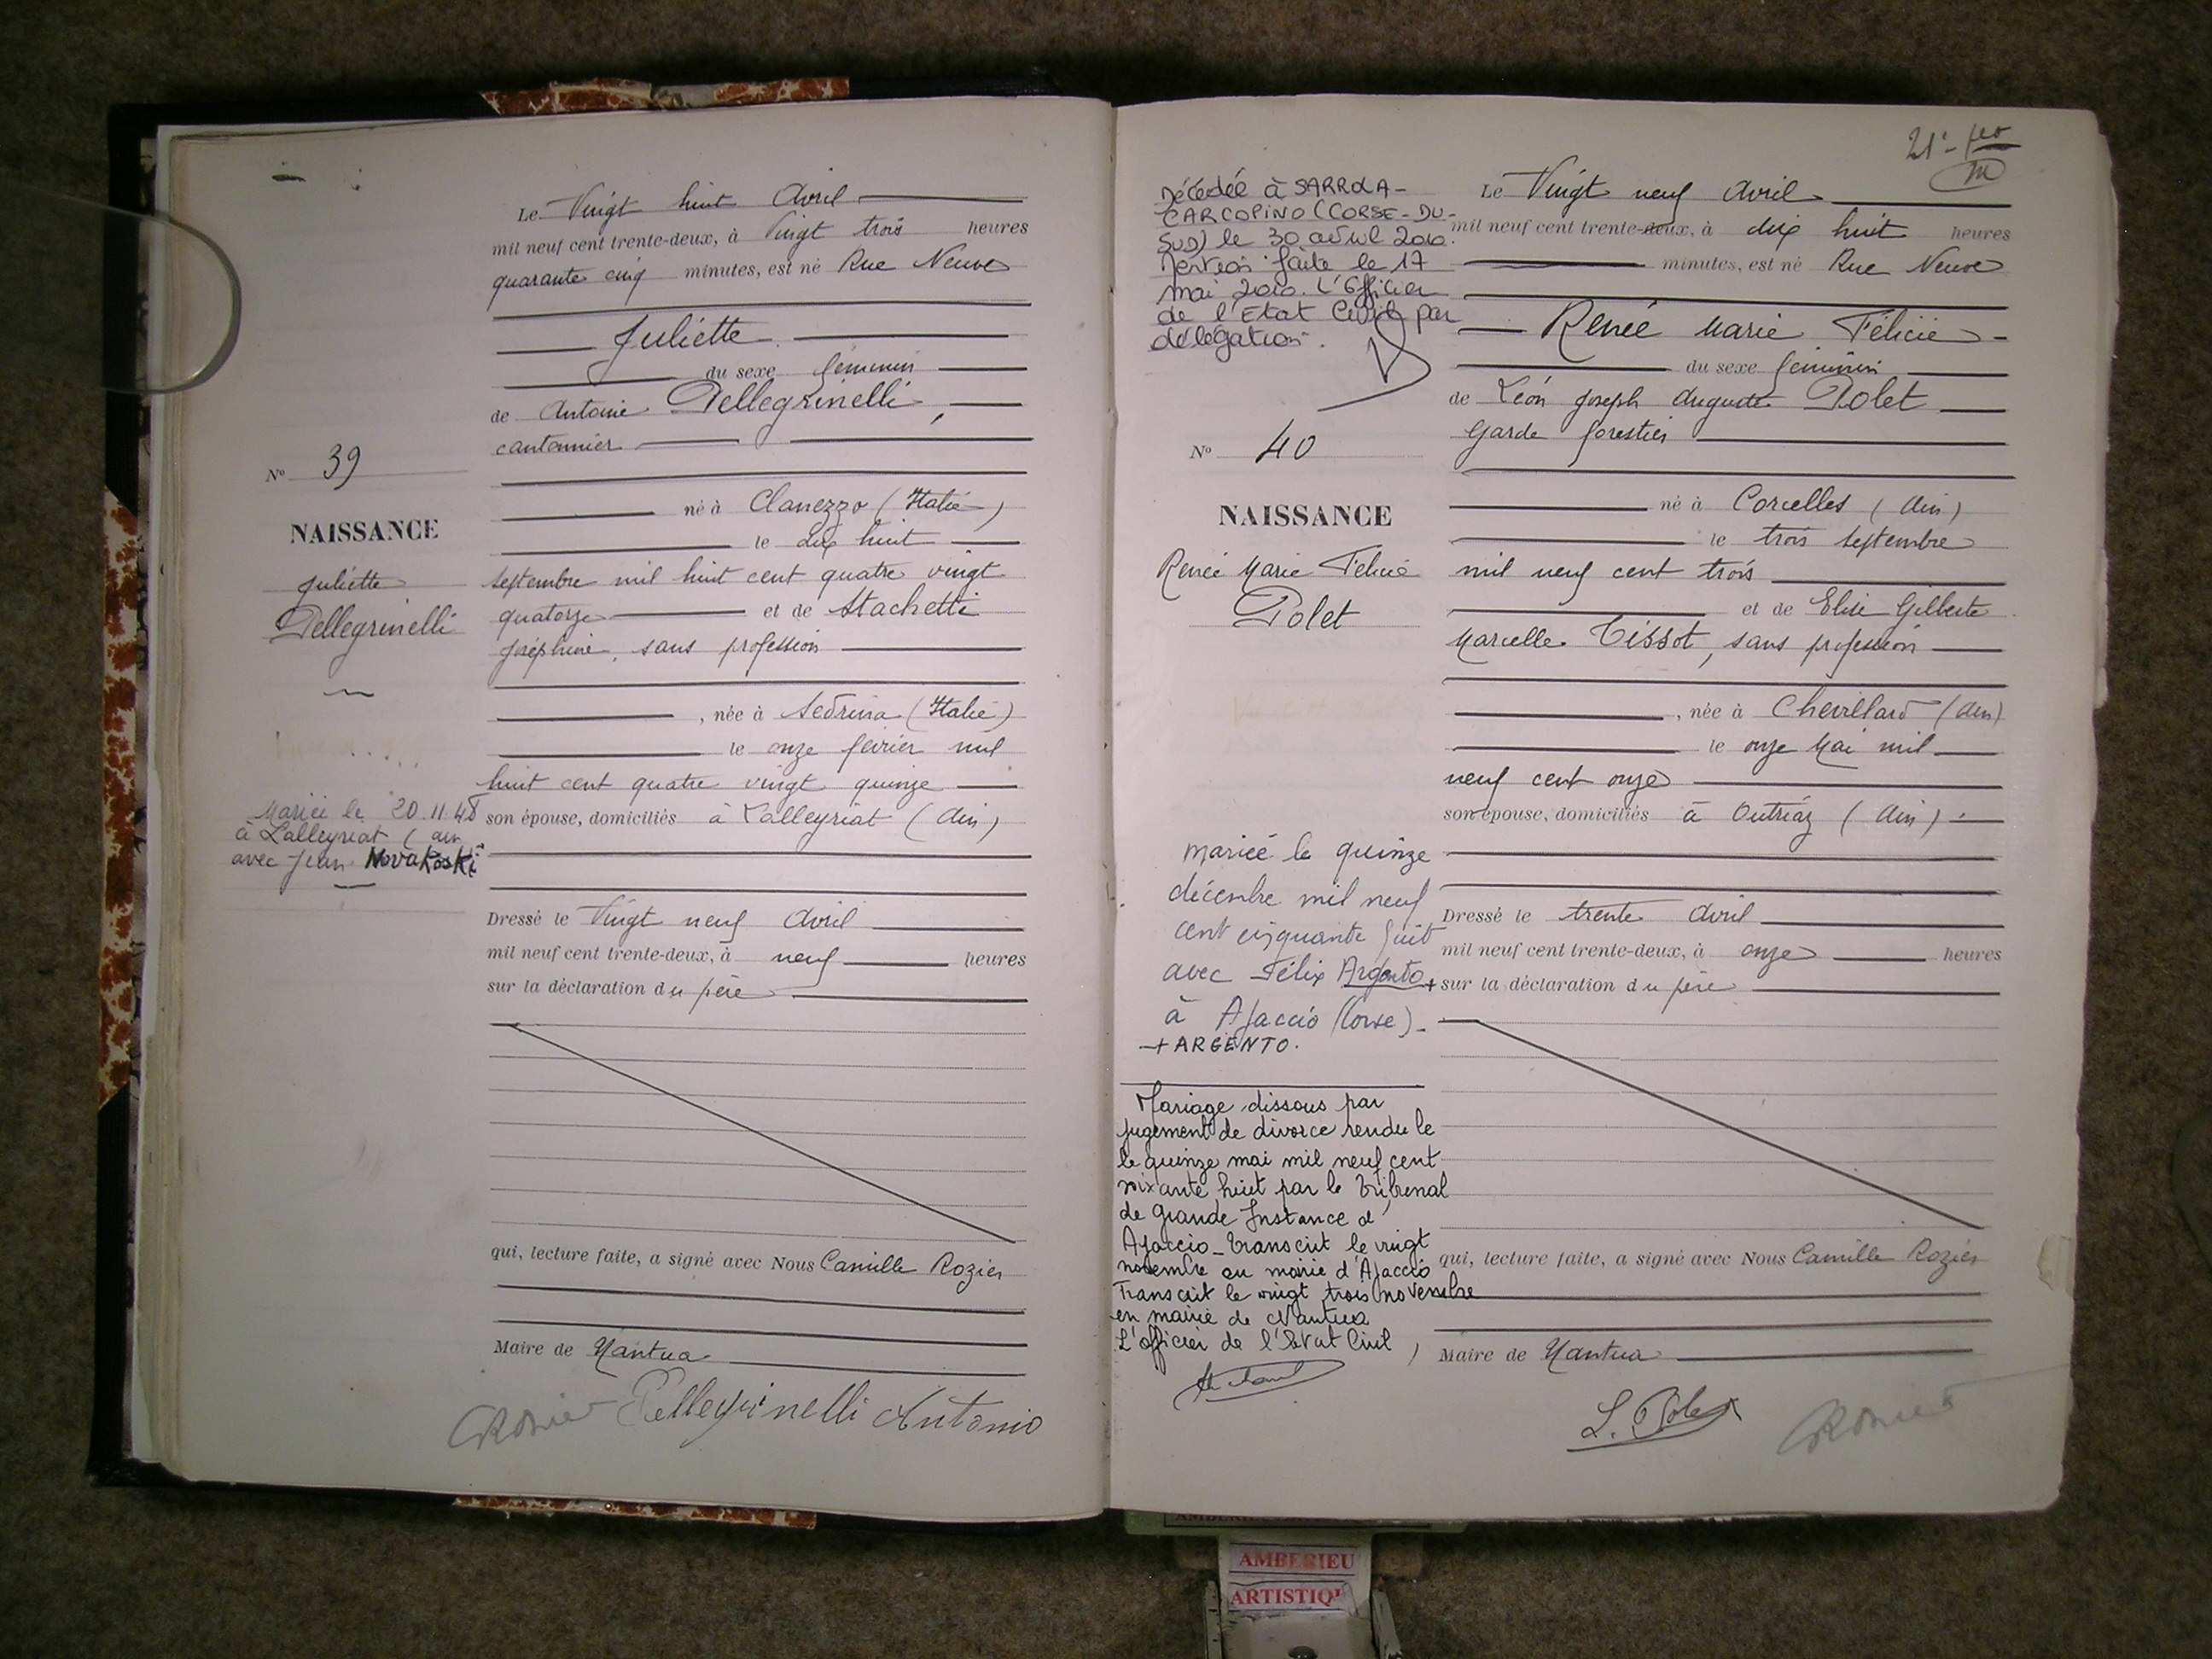 Le Vingt huit Avril
mil neuf cent trente-deux, à Vingt trois heures
quarante cinq minutes, est né Rue Neuve
Juliette
du sexe féminin
de Antoine Pellegrinelli,
cantonnier
N° 39
né à Clanezzo (Italie)
NAISSANCE
le dix huit
Juliette
septembre mil huit cent quatre vingt
Pellegrinelli
quatorze et de Stachetti
Joséphine, sans profession
, née à Sedrina (Italie)
le onze février mil
huit cent quatre vingt quinze
son épouse, domiciliés à Lalleyriat (Ain)
Mariée le 20.11.48
à Lalleyriat (ain
avec Jean Novakoski
Dressé le Vingt neuf Avril
mil neuf cent trente-deux, à neuf heures
sur la déclaration du père
qui, lecture faite, a signé avec Nous Camille Rozier
Maire de Nantua
Pellegrinelli Antonio
21e
Décédée à SARROLA-
CARCOPINO (CORSE-DU-
SUD) le 30 avril 2010.
Mention faite le 17
mai 2010. L'Officier
de l'Etat Civil par
délégation.
Le Vingt neuf Avril
mil neuf cent trente-deux, à dix huit heures
minutes, est né Rue Neuve
Renée Marie Félicie
du sexe féminin
de Léon Joseph Auguste Polet
Garde forestier
N° 40
né à Corcelles (Ain)
NAISSANCE
le trois septembre
Renée Marie Félicie
mil neuf cent trois
Polet
et de Elise Gilberte
Marcelle Tissot, sans profession
, née à Chevillard (Ain)
le onze Mai mil
neuf cent onze
son épouse, domiciliés à Outriaz (Ain)
mariée le quinze
décembre mil neuf
cent cinquante huit
avec Félix Argento +
à Ajaccio (Corse)_
+ ARGENTO.
Dressé le trente Avril
mil neuf cent trente-deux, à onze heures
sur la déclaration du père
Mariage dissous par
jugement de divorce rendu le
le quinze mai mil neuf cent
soixante huit par le Tribunal
de Grande Instance d'
Ajaccio_Transcrit le vingt
novembre en mairie d'Ajaccio
Transcrit le vingt trois novembre
en mairie de Nantua
L'officier de l'Etat Civil,
qui, lecture faite, a signé avec Nous Camille Rozier
Maire de Nantua
L. Polet
AMBERIEU
ARTISTIQ